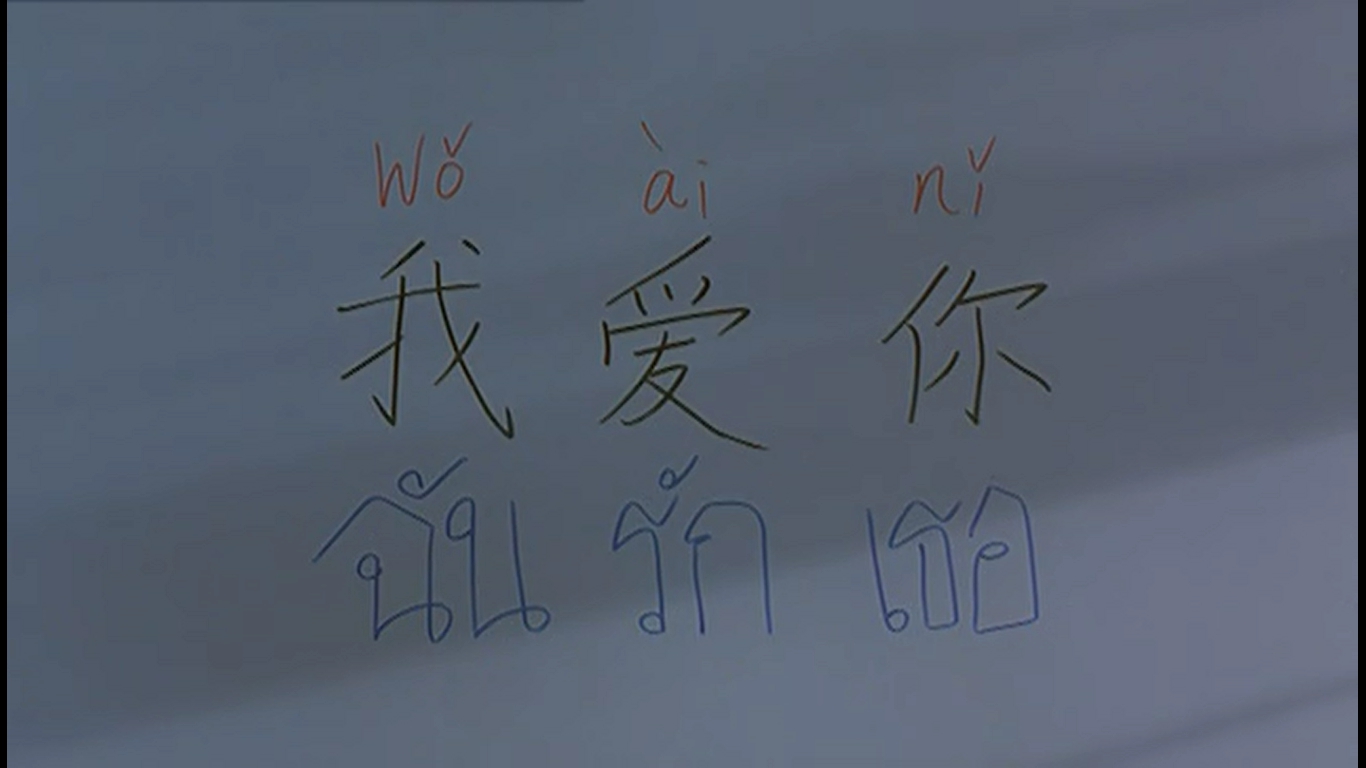 Wǒ ài nǐ
我 爱 你
ฉัน รัก เธอ